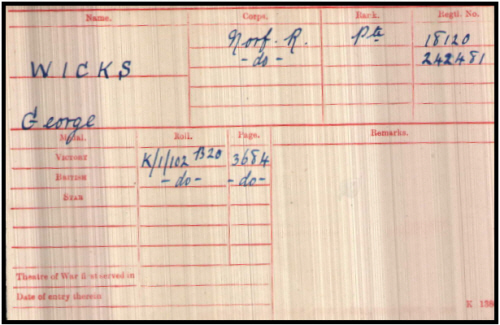 Name. Corps. Rank. Regtl. No.
Norf. R. Pte 18120
WICKS - do - 242481
George
Medal. Roll. Page. Remarks.
Victory K/1/102 B20 3684
British - do - - do -
Star
Theatre of War first served in
Date of entry therein
K 138